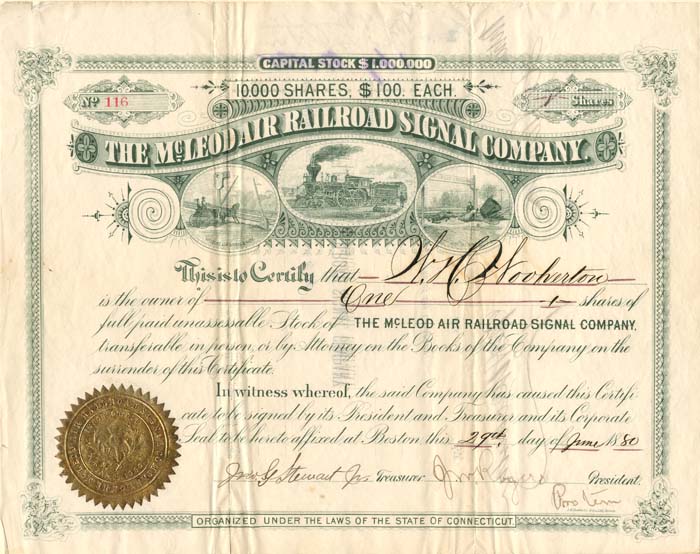 CAPITAL STOCK $1,000,000
10,000 SHARES, $100. EACH.
No 116
1 Shares
THE McLEOD AIR RAILROAD SIGNAL COMPANY.
This is to Certify that W. H.
is the owner of One 1 shares of
full paid unassessable Stock of THE McLEOD AIR RAILROAD SIGNAL COMPANY,
transferable in person, or by Attorney on the Books of the Company on the
surrender of this Certificate.
In witness whereof, the said Company has caused this Certifi-
cate to be signed by its President and Treasurer and its Corporate
Seal to be hereto affixed at Boston this 29th day of June 1880
Jno. G. Stewart Jr. Treasurer J. W. Rogers President.
Pro Tem
ORGANIZED UNDER THE LAWS OF THE STATE OF CONNECTICUT.